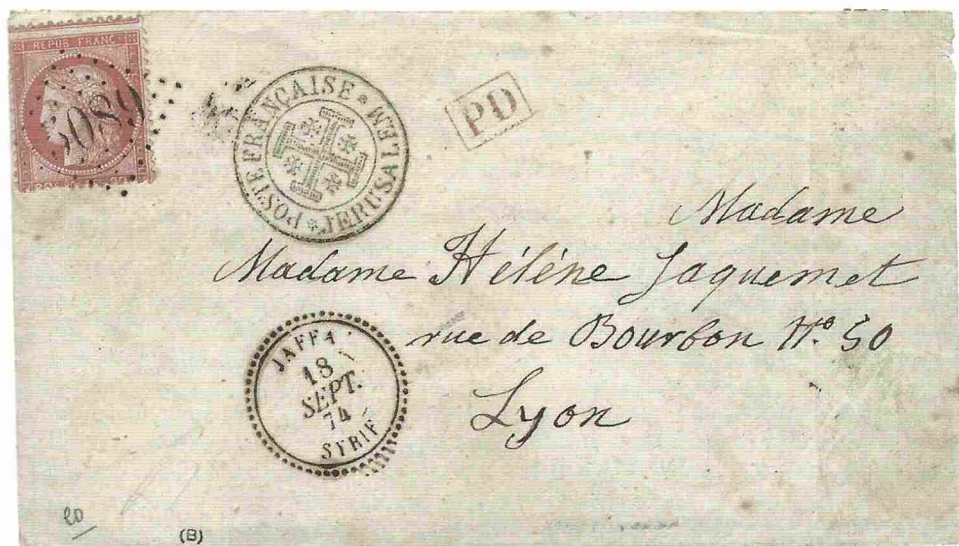 REPUB FRANC
POSTE FRANÇAISE
JERUSALEM
PD
Madame
Madame Hélène Jaquemet
rue de Bourbon Nº 50
Lyon
JAFFA
18
SEPT.
74
SYRIE
20
(B)